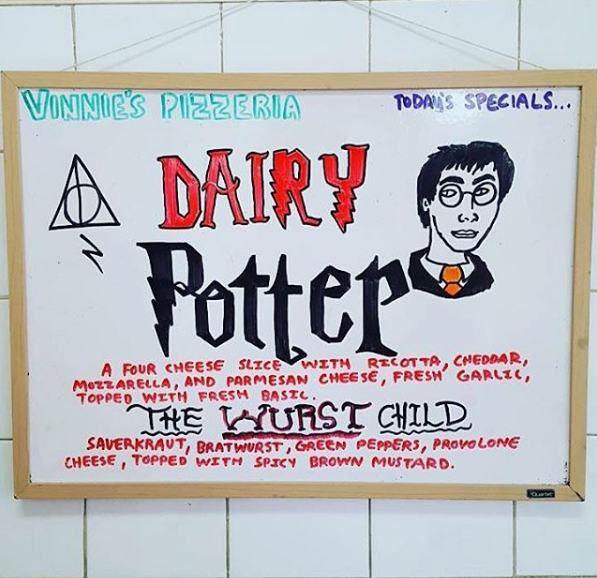 VINNIE'S PIZZERIA
TODAY'S SPECIALS...
DAIRY
Potter
A FOUR CHEESE SLICE WITH RICOTTA, CHEDDAR,
MOZZARELLA, AND PARMESAN CHEESE, FRESH GARLIC,
TOPPED WITH FRESH BASIL.
THE WURST CHILD
SAUERKRAUT, BRATWURST, GREEN PEPPERS, PROVOLONE
CHEESE, TOPPED WITH SPICY BROWN MUSTARD.
Quartet